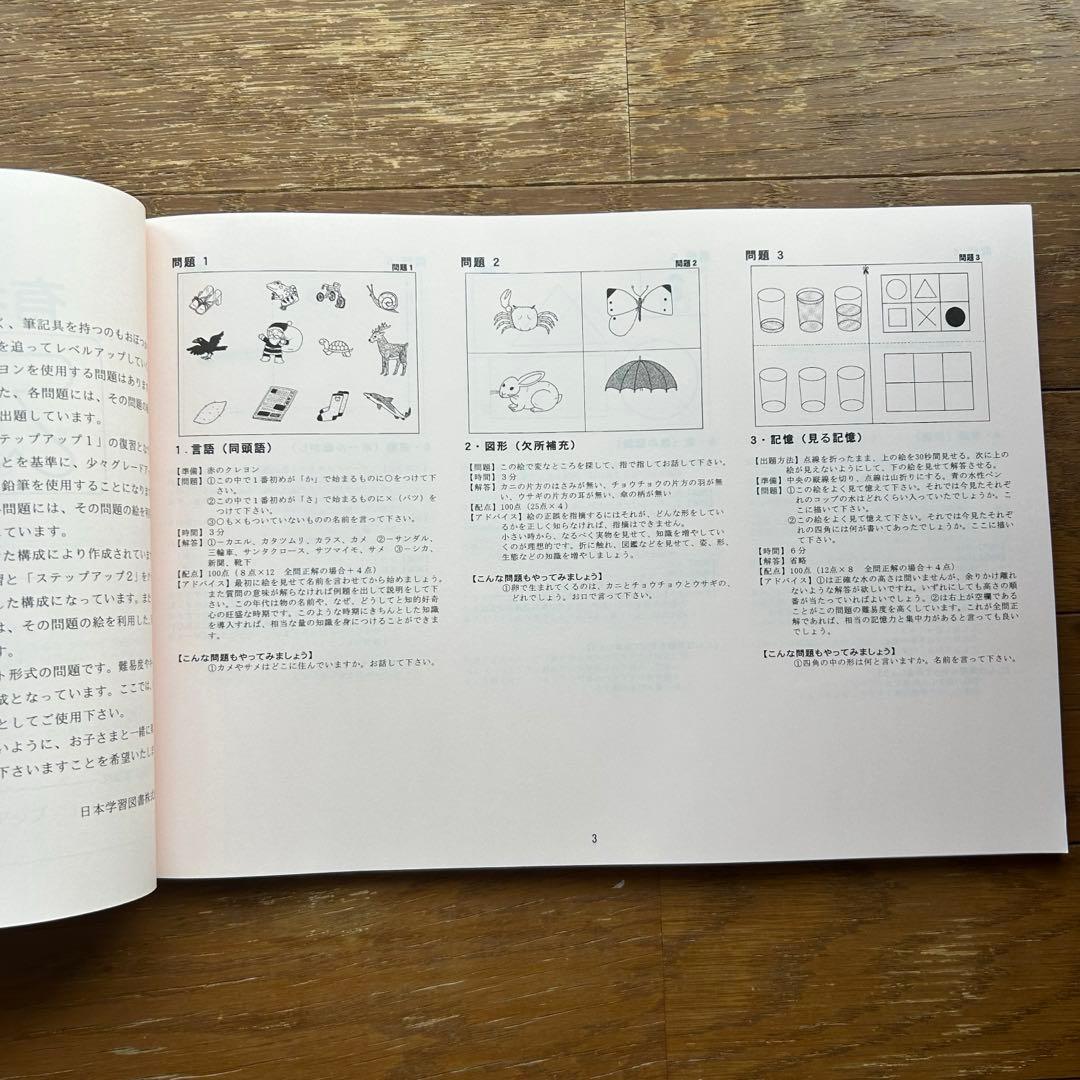 く、筆記具を持つのもおぼつか
を追ってレベルアップしてい
ヨンを使用する問題はありま
た、各問題には、その問題の
出題しています。
テップアップ1」の復習とな
とを基準に、少々グレードア
鉛筆を使用することになりま
問題には、その問題の絵を利
ています。
た構成により作成されていま
習と「ステップアップ2」を
した構成になっています。また
は、その問題の絵を利用した
す。
ト形式の問題です。難易度や
成となっています。ここでは、
としてご使用下さい。
いように、お子さまと一緒に
下さいますことを希望いたしま
日本学習図書株式
問題 1
問題1
1．言語（同頭語）
【準備】赤のクレヨン
【問題】①この中で1番初めが「か」で始まるものに○をつけて下
さい。
②この中で1番初めが「さ」で始まるものに×（バツ）を
つけて下さい。
③○も×もついていないものの名前を言って下さい。
【時間】3分
【解答】①－カエル、カタツムリ、カラス、カメ　②－サンダル、
三輪車、サンタクロース、サツマイモ、サメ　③－シカ、
新聞、靴下
【配点】100点（8点×12　全問正解の場合＋4点）
【アドバイス】最初に絵を見せて名前を言わせてから始めましょう。
また質問の意味が解らなければ例題を出して説明をして下
さい。この年代は物の名前や、なぜ、どうしてと知的好奇
心の旺盛な時期です。このような時期にきちんとした知識
を導入すれば、相当な量の知識を身につけることができま
す。
【こんな問題もやってみましょう】
①カメやサメはどこに住んでいますか。お話して下さい。
問題 2
問題2
2・図形（欠所補充）
【問題】この絵で変なところを探して、指で指してお話して下さい。
【時間】3分
【解答】カニの片方のはさみが無い、チョウチョウの片方の羽が無
い、ウサギの片方の耳が無い、傘の柄が無い
【配点】100点（25点×4）
【アドバイス】絵の正誤を指摘するにはそれが、どんな形をしてい
るかを正しく知らなければ、指摘はできません。
小さい時から、なるべく実物を見せて、知識を増やしてい
くのが理想的です。折に触れ、図鑑などを見せて、姿、形、
生態などの知識を増やしましょう。
【こんな問題もやってみましょう】
①卵で生まれてくるのは、カニとチョウチョウとウサギの、
どれでしょう。お口で言って下さい。
問題 3
問題3
3・記憶（見る記憶）
【出題方法】点線を折ったまま、上の絵を30秒間見せる。次に上の
絵が見えないようにして、下の絵を見せて解答させる。
【準備】中央の縦線を切り、点線は山折りにする。青の水性ペン
【問題】①この絵をよく見て憶えて下さい。それでは今見たそれぞ
れのコップの水はどれくらい入っていたでしょうか。こ
こに描いて下さい。
②この絵をよく見て憶えて下さい。それでは今見たそれぞ
れの四角には何が書いてあったでしょうか。ここに描い
て下さい。
【時間】6分
【解答】省略
【配点】100点（12点×8　全問正解の場合＋4点）
【アドバイス】①は正確な水の高さは問いませんが、余りかけ離れ
ないような解答が欲しいですね。いずれにしても高さの順
番が当たっていればよいでしょう。②は右上が空欄である
ことがこの問題の難易度を高くしています。これが全問正
解であれば、相当の記憶力と集中力があると言っても良い
でしょう。
【こんな問題もやってみましょう】
①四角の中の形は何と言いますか。名前を言って下さい。
3